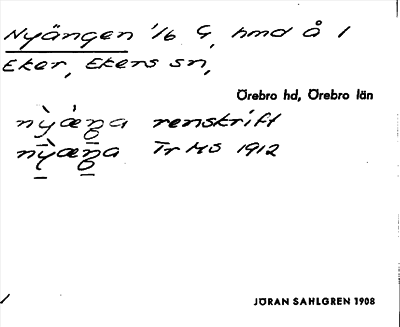 Nyängen 1/6 G, hmd å 1
Eker, Ekers sn,
Örebro hd, Örebro län
nỳæ̀na renskrift
nỳæna Tr MS 1912
JÖRAN SAHLGREN 1908